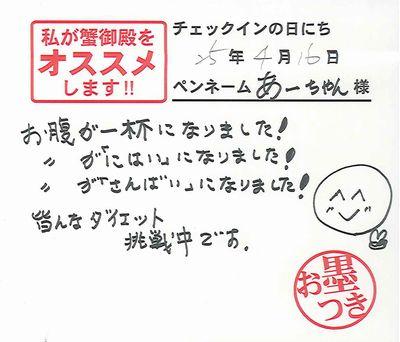 私が蟹御殿を
オススメ
します!!
チェックインの日にち
25年4月16日
ペンネーム あーちゃん 様
お腹が一杯になりました!
〃 が「にはい」になりました!
〃 が「さんばい」になりました!
皆んなダイエット
挑戦中です。
お墨つき